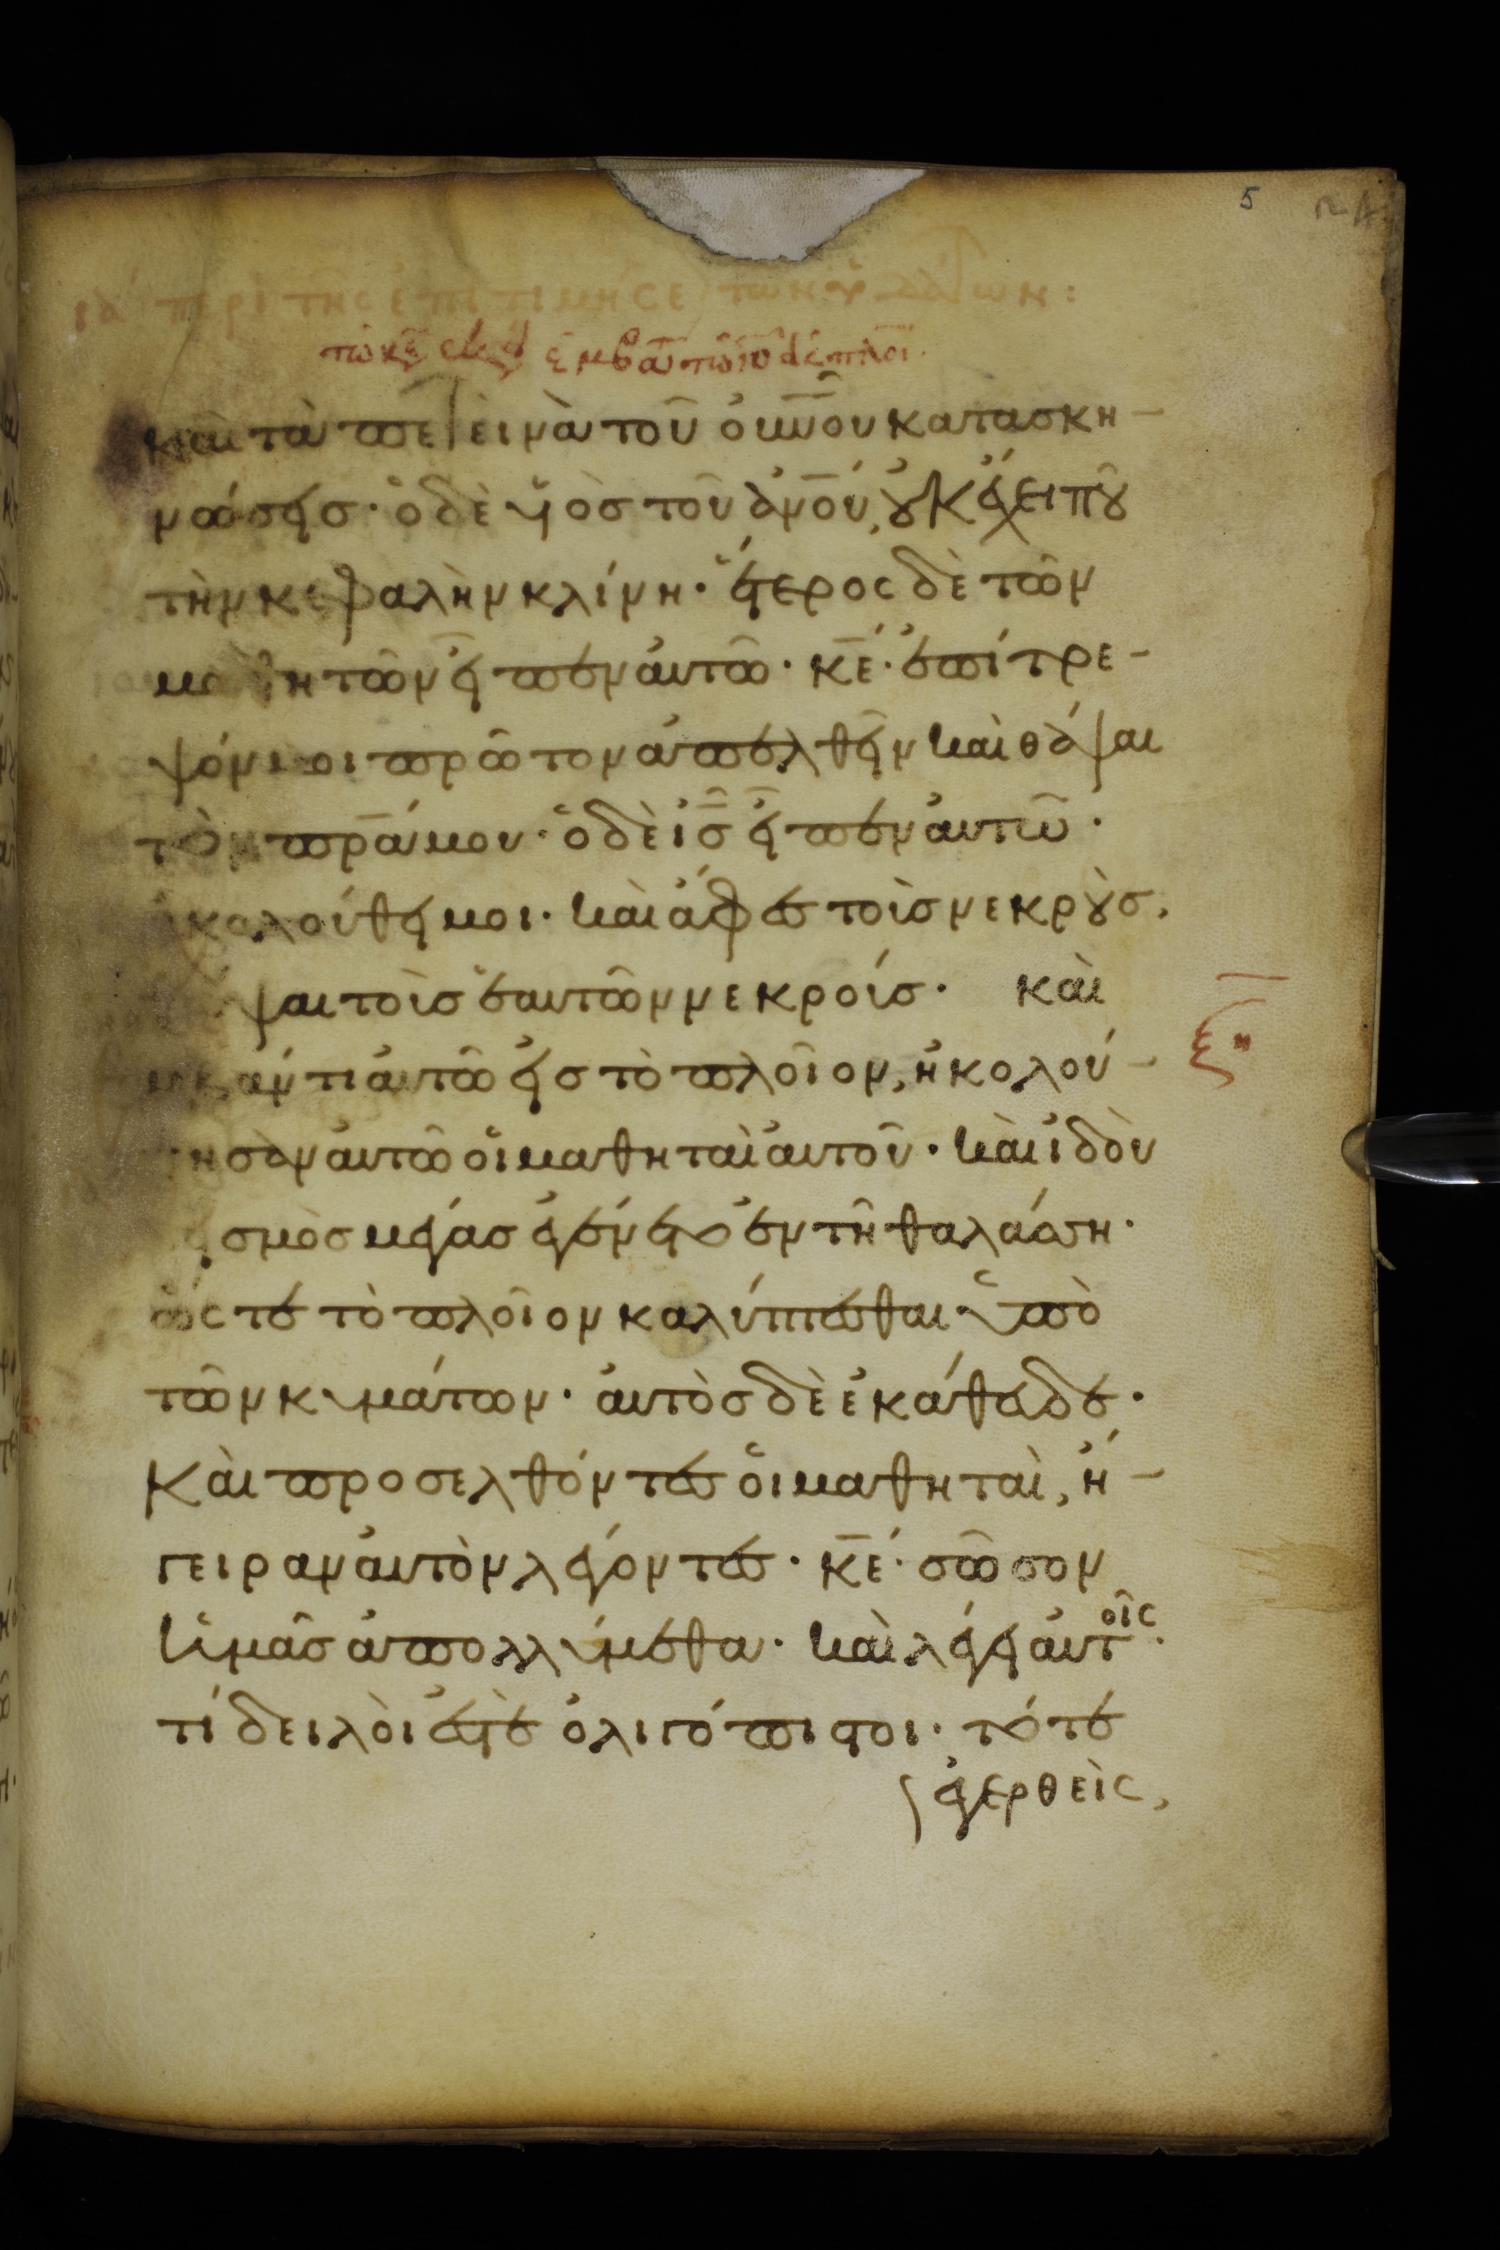 5
ια περὶ τῆς ἐπιτιμήσε τῶν ὑδάτων:
καὶ τὰ πετεινὰ τοῦ οὐ̅νου κατασκη-
νώσεις· ὁ δὲ ὑιὸσ τοῦ ἀν̅ου, οὐκ ἔχει ποῦ
τὴν κεφαλὴν κλίνη· ἕτερος δὲ τῶν
μαθητῶν εἶπεν ἀυτῶ· κ̅ε· ἐπίτρε-
ψόν μοι πρῶτον ἀπελθεῖν καὶ θάψαι
τὸν πρ̅α μου· ὁ δὲ ι̅σ εἶπεν ἀυτῶ·
ἀκολούθει μοι· καὶ ἄφες τοὺσ νεκροὺσ,
θάψαι τοὺσ ἑαυτῶν νεκρούσ· καὶ
ἐμβάντι ἀυτῶ εἰσ τὸ πλοῖον, ἠκολού-
θησαν ἀυτῶ οἱ μαθηταὶ ἀυτοῦ· καὶ ἰδοὺ
σεισμὸσ μέγασ ἐγένετο ἐν τῆ θαλάσση·
ὥστε τὸ πλοῖον καλύπτεσθαι ὑπὸ
τῶν κυμάτων· ἀυτὸσ δὲ ἐκάθευδε·
Καὶ προσελθόντες οἱ μαθηταὶ, ἤ-
γειραν ἀυτὸν λέγοντες· κ̅ε· σῶσον
ἡμᾶσ ἀπολλύμεθα· καὶ λέγει ἀυτοῖς·
τί δειλοὶ ἐστὲ ὀλιγόπιστοι· τότε
ἐγερθεὶς,